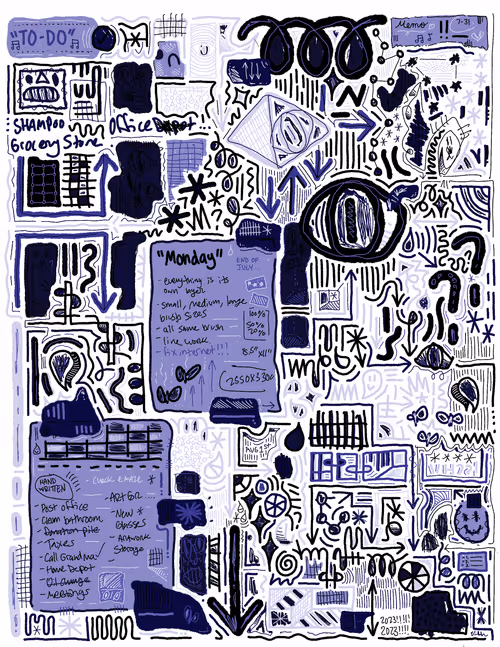 "TO-DO"
Memo
7-31
SHAMPOO
Office Depot..
Grocery Store
"Monday"
END OF
JULY...
- everything is its
own layer
- small, medium, large
brush sizes
- all same brush
- line work
- fix internet!!!
100%
50%
20%
8.5"x11"
2550x3300
AUG 1ST
HAND
WRITTEN
- CHECK EMAIL
Post office
Clean bathroom
Donation pile
Taxes
- Call Grandma
- Home Depot
- Oil change
- Meetings
- ART FOR
- New
Glasses
- Artwork
Storage
2023!!!!
2023!!!!